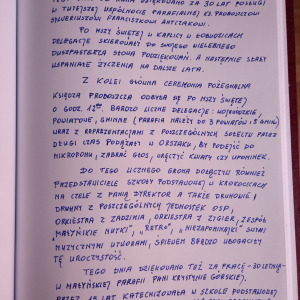 DZIĘKOWANO ZA 30 LAT POSŁUGI
W TUTEJSZEJ WSPÓLNOCIE PARAFIALNEJ KS. PROBOSZCZOWI
SYLWERIUSZOWI FRANCISZKOWI ANTCZAKOWI.
PO MSZY ŚWIĘTEJ W KAPLICY W
DELEGACJE SKIEROWAŁY DO SWOJEGO WIELEBNEGO
DUSZPASTERZA SŁOWA PODZIĘKOWAŃ. A NASTĘPNIE SKŁAD
WSPANIAŁE ŻYCZENIA NA DALSZE LATA.
Z KOLEI GŁÓWNA CEREMONIA POŻEGNALNA
KSIĘDZA PROBOSZCZA ODBYŁA SIĘ PO MSZY ŚWIĘTEJ
O GODZ. BARDZO LICZNE DELEGACJE: WOJEWÓDZKIE,
POWIATOWE, GMINNE (PARAFIA NALEŻY DO 3 POWIATÓW I 3 GMIN)
WRAZ Z REPREZENTACJAMI Z POSZCZEGÓLNYCH SOŁECTW PRZEZ
DŁUGI CZAS PODĄŻAŁY W ORSZAKU, BY PODEJŚĆ DO
MIKROFONU, ZABRAĆ GŁOS, WRĘCZYĆ KWIATY CZY UPOMINEK.
DO TEGO LICZNEGO GRONA DOŁĄCZYLI RÓWNIEŻ
PRZEDSTAWICIELE SZKOŁY PODSTAWOWEJ W KROKOCICACH
NA CZELE Z PANIĄ DYREKTOR A TAKŻE DRUHOWIE I
DRUHNY Z POSZCZEGÓLNYCH JEDNOSTEK OSP,
ORKIESTRA Z ZADZIMIA, ORKIESTRA Z ZYGIER, ZESPÓŁ
„MAŁYŃSKIE NUTKI", „RETRO", „NIEZAPOMINAJKI" SWYMI
MUZYCZNYMI UTWORAMI, ŚPIEWEM BARDZO UBOGACIŁY
TĘ UROCZYSTOŚĆ.
TEGO DNIA DZIĘKOWANO TEŻ ZA PRACĘ - 30 LETNIĄ -
W MAŁYŃSKIEJ PARAFII PANI KRYSTYNIE GÓRSKIEJ,
PRZEZ LAT KATECHIZOWAŁA W SZKOLE PODSTAWOWEJ